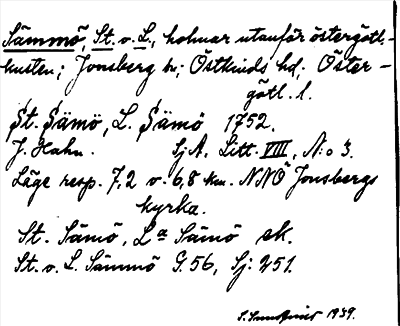 Sämmö, St. o. L., holmar utanför östergötl.-
kusten; Jonsberg sn; Östkinds hd; Öster-
götl. l.
St. Sämö, L. Sämö 1752.
J. Hahn. SjA, Litt. VIII, N:o 3.
Läge resp. 7,2 o. 6,8 km. NNÖ Jonsbergs
kyrka.
St. Sämö, La Sämö ek.
St. o. L. Sämmö G. 56, Sj: 251.
1939.